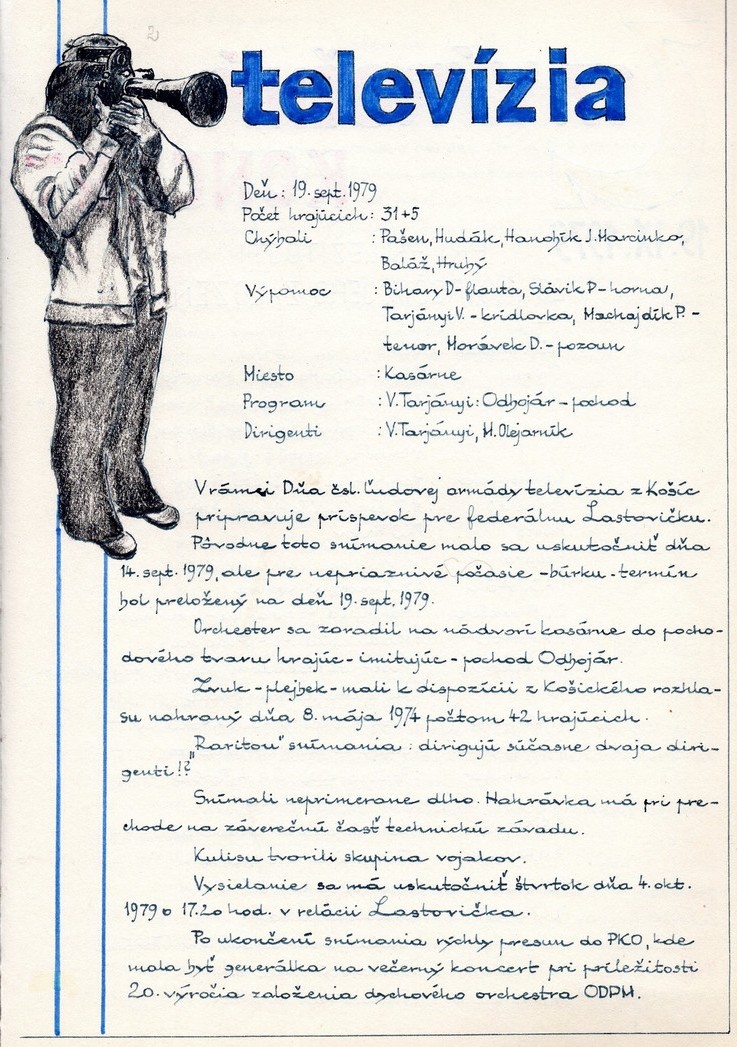 2
televízia
Deň : 19. sept. 1979
Počet hrajúcich : 31+5
Chýbali : Pašen, Hudák, Hanohik J. Marcinko,
Baláž, Hruhý
Výpomoc : Bihary D - flauta, Slávik P - horna,
Tarjányi V. - krídlovka, Machajdík P. -
tenor, Morávek D. - pozoun
Miesto : Kasárne
Program : V. Tarjányi: Odhojár - pochod
Dirigenti : V. Tarjányi, M. Olejarník
V rámci Dňa čsl. Ľudovej armády televízia z Košíc
pripravuje príspevok pre federálnu Lastovičku.
Pôvodne toto snímanie malo sa uskutočniť dňa
14. sept. 1979, ale pre nepriaznivé počasie - búrku - termín
bol preložený na deň 19. sept. 1979.
Orchester sa zoradil na nádvorí kasárne do pocho-
dového tvaru hrajúc - imitujúc - pochod Odhojár.
Zvuk - plejbek - mali k dispozícii z Košického rozhla-
su nahraný dňa 8. mája 1974 počtom 42 hrajúcich.
"Raritou" snímania : dirigujú súčasne dvaja diri-
genti!?
Snímali neprimerane dlho. Nahrávka má pri pre-
chode na záverečnú časť technickú závadu.
Kulisu tvorili skupina vojakov.
Vysielanie sa má uskutočniť štvrtok dňa 4. okt.
1979 o 17.20 hod. v relácii Lastovička.
Po ukončení snímania rýchly presun do PKO, kde
mala byť generálka na večerný koncert pri príležitosti
20. výročia založenia dychového orchestra ODPM.